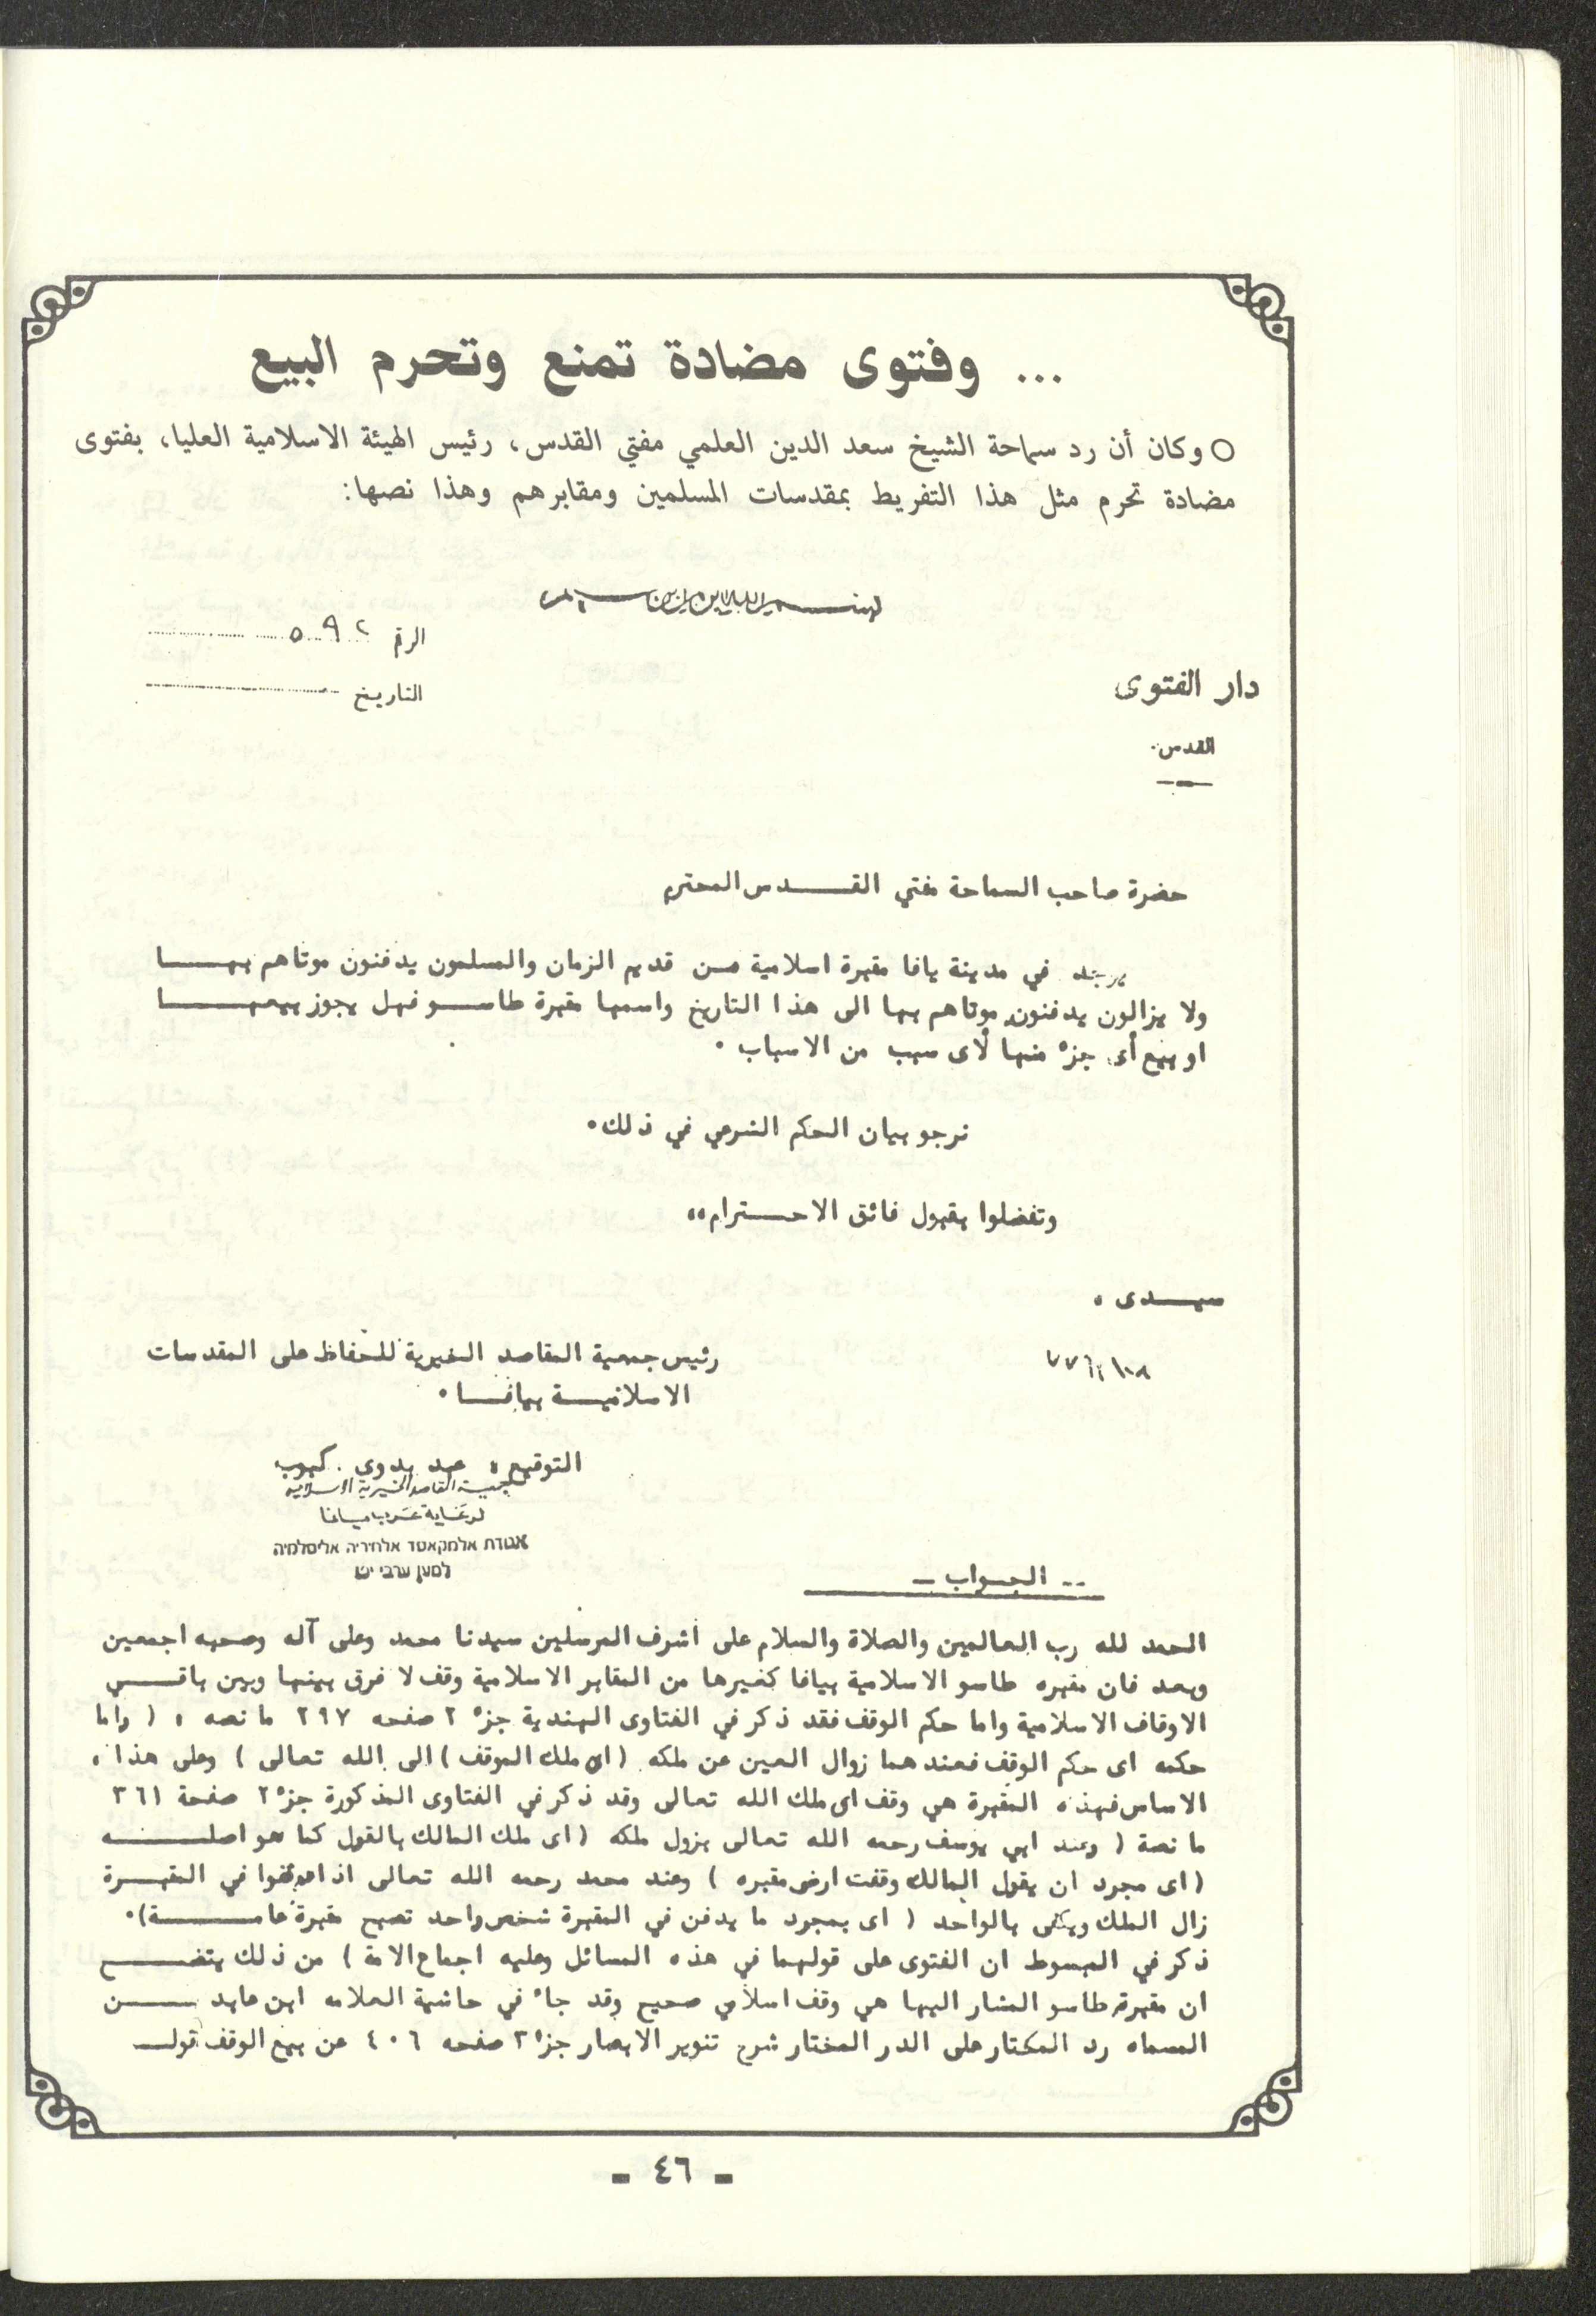 ... وفتوى مضادة تمنع وتحرم البيع
○ وكان أن رد سماحة الشيخ سعد الدين العلمي مفتي القدس، رئيس الهيئة الاسلامية العليا، بفتوى
مضادة تحرم مثل هذا التفريط بمقدسات المسلمين ومقابرهم وهذا نصها:
الرقم ٥٩٢
دار الفتوى
التاريخ
القدس
حضرة صاحب السماحة مفتي القدس المحترم
يوجد في مدينة يافا مقبرة اسلامية من قديم الزمان والمسلمون يدفنون موتاهم بها
ولا يزالون يدفنون موتاهم بها الى هذا التاريخ واسمها مقبرة طاسو فهل يجوز بيعها
او بيع أى جزء منها لأى سبب من الاسباب .
نرجو بيان الحكم الشرعي في ذلك.
وتفضلوا بقبول فائق الاحترام،،
سيدى ،
رئيس جمعية المقاصد الخيرية للحفاظ على المقدسات
الاسلامية بيافا .
التوقيع : عبد بدوي كبوب
جمعية المقاصد الخيرية الاسلامية
لرعاية عرب يافا
אגודת אלמקאסד אלחיריה אליסלמיה
למען ערבי יפו
-- الجواب -
الحمد لله رب العالمين والصلاة والسلام على أشرف المرسلين سيدنا محمد وعلى آله وصحبه اجمعين
وبعد فان مقبره طاسو الاسلامية بيافا كغيرها من المقابر الاسلامية وقف لا فرق بينها وبين باقي
الاوقاف الاسلامية واما حكم الوقف فقد ذكر في الفتاوى الهندية جزء ٢ صفحه ٢٩٧ ما نصه : ( واما
حكمه اى حكم الوقف فعندهما زوال العين عن ملكه (اى ملك الموقف) الى الله تعالى ) وعلى هذا ،
الاساس فهذه المقبرة هي وقف اى ملك الله تعالى وقد ذكر في الفتاوى المذكورة جزء ٢ صفحة ٣٦١
ما نصة ( وعند ابي يوسف رحمه الله تعالى يزول ملكه (اى ملك المالك بالقول كما هو اصله
(اى مجرد ان يقول المالك وقفت ارضى مقبره ) وعند محمد رحمه الله تعالى اذا دفنوا في المقبرة
زال الملك ويكتفى بالواحد ( اى بمجرد ما يدفن في المقبرة شخص واحد تصبح مقبرة عامة).
ذكر في المبسوط ان الفتوى على قولهما في هذه المسائل وعليه اجماع الامة ) من ذلك يتضح
ان مقبرة طاسو المشار اليها هي وقف اسلامي صحيح وقد جاء في حاشية العلامه ابن عابدين
المسماه رد المحتار على الدر المختار شرح تنوير الابصار جزء ٣ صفحه ٤٠٦ عن بيع الوقف قوله
- ٤٦ -